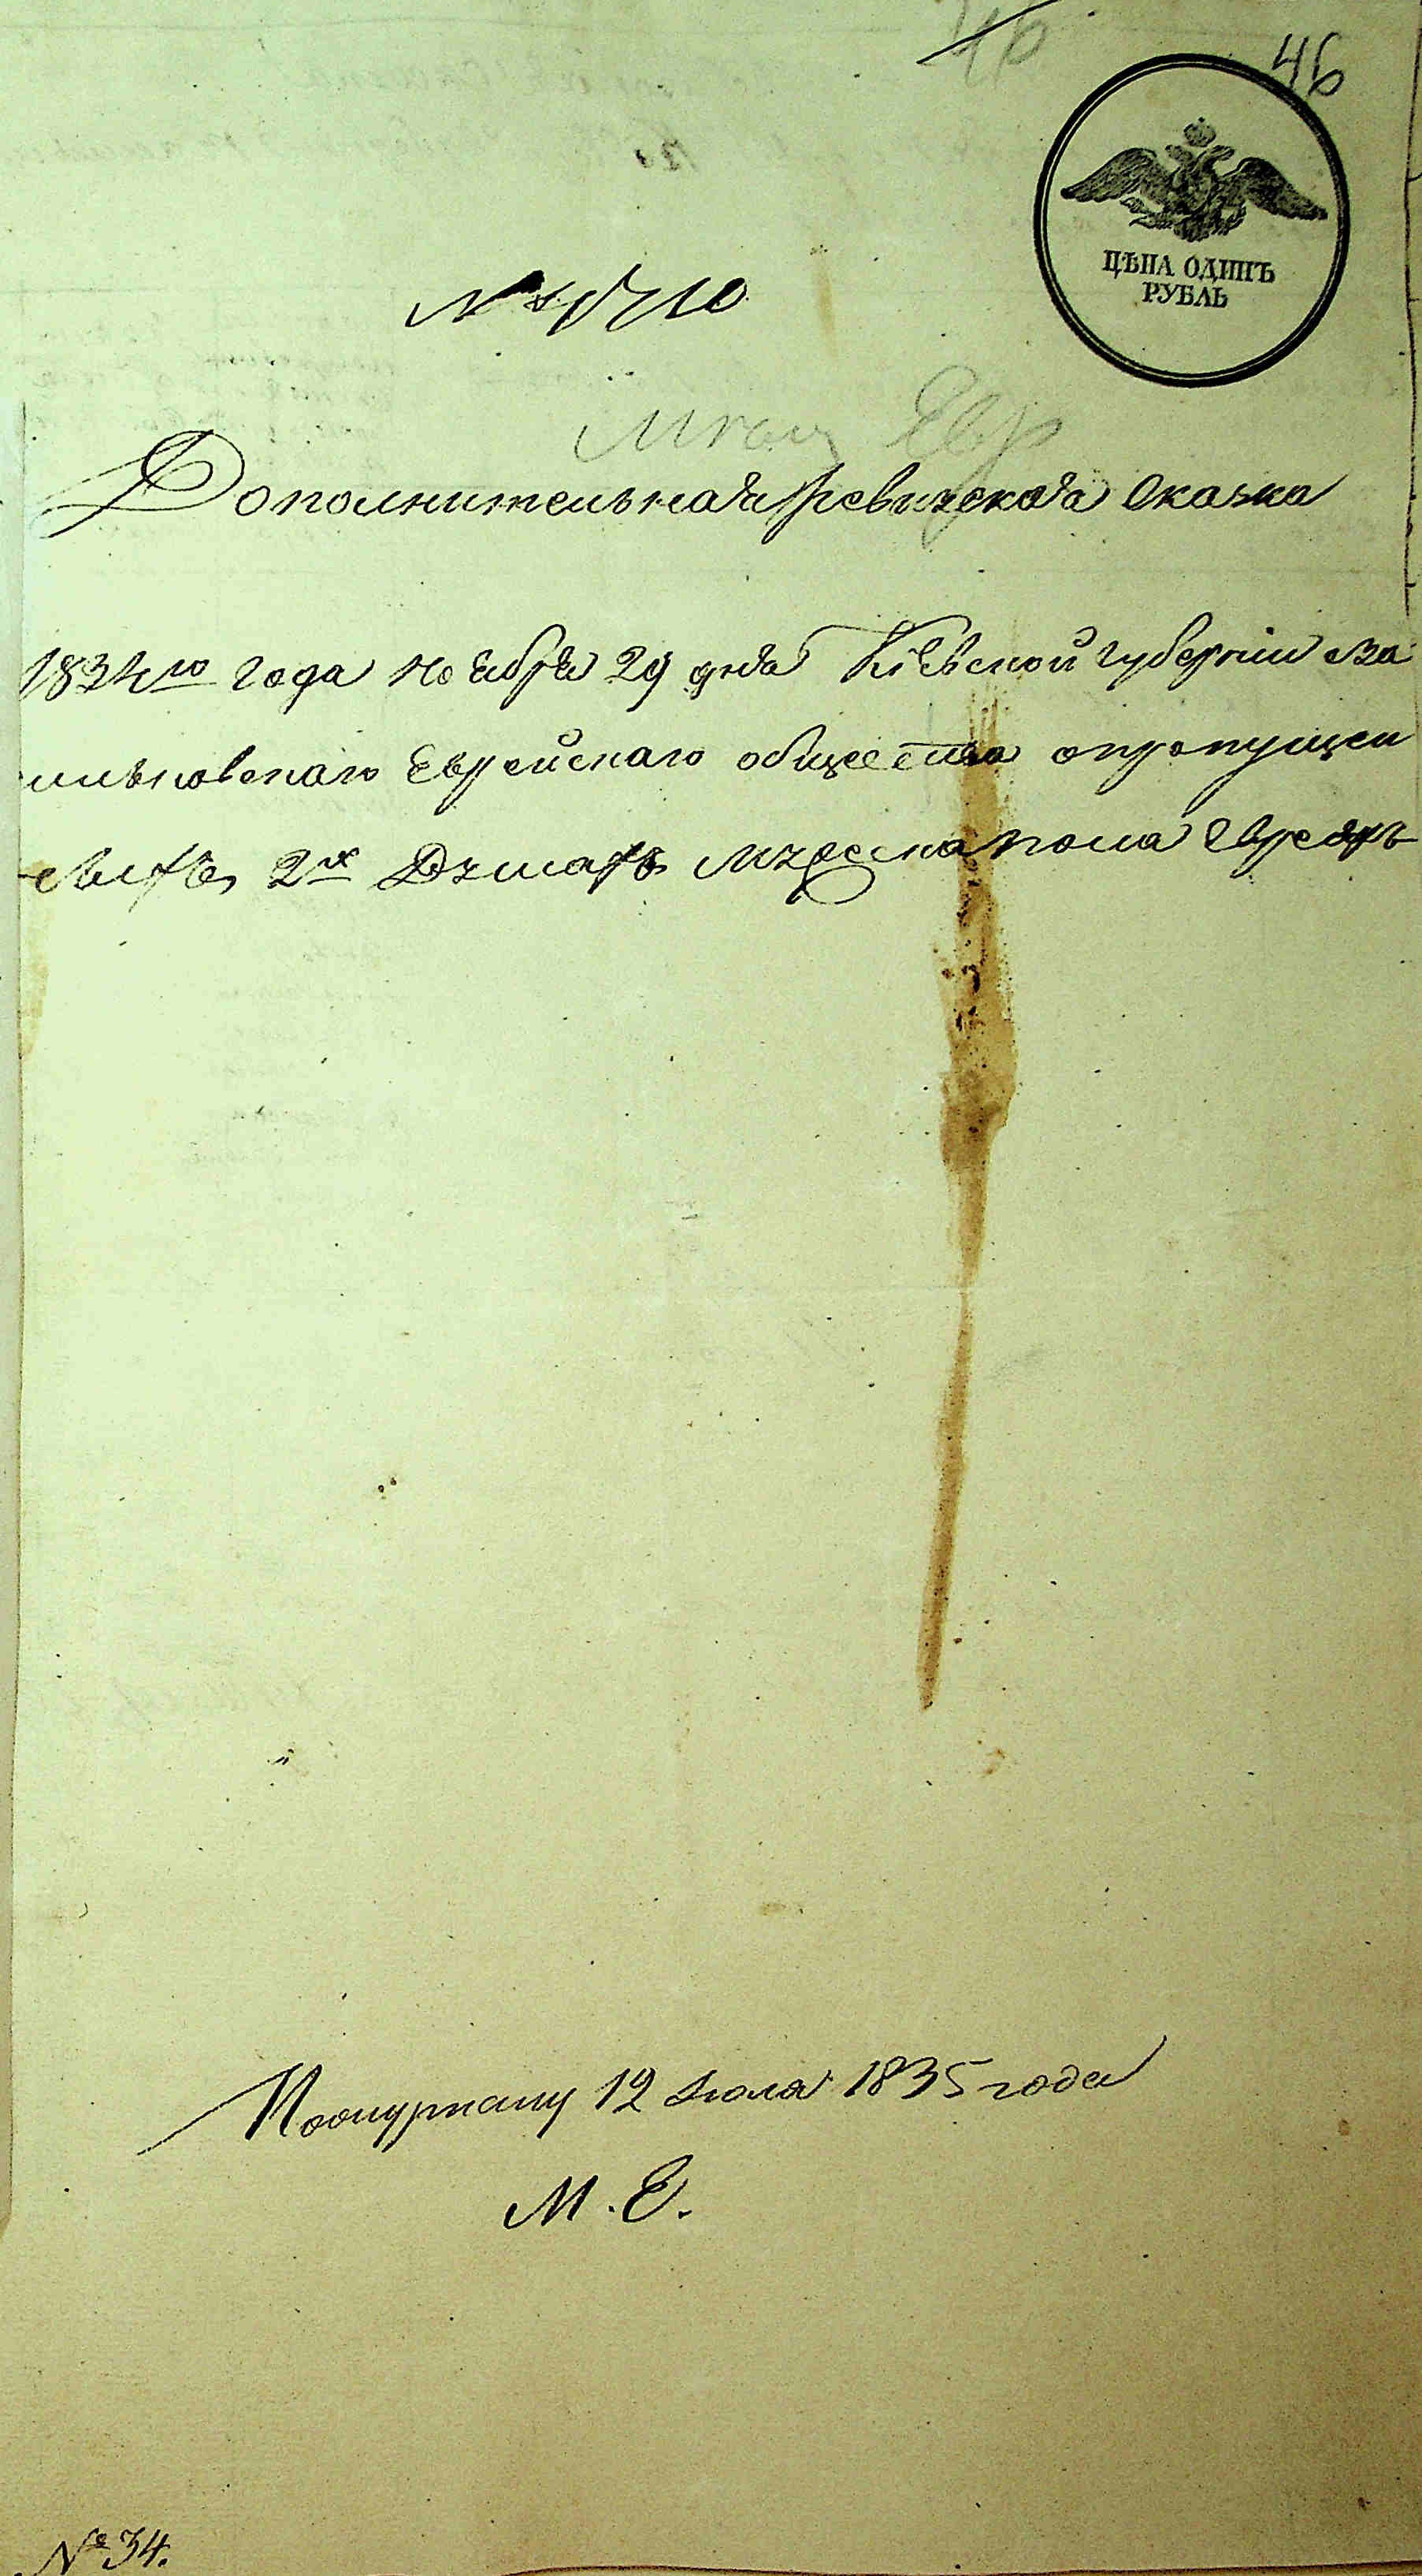 46
46
ЦѢНА ОДИНЪ
РУБЛЬ
Мѣщ Евр
Дополнительная ревизская сказка
1834го года ноября 29 дня Кіевской губерніи Ва
сильковскаго Еврейскаго общества опропущен
ныхъ 2х душахъ мужеска пола Евреяхъ
12 Іюля 1835 года
М. Е.
№ 34.